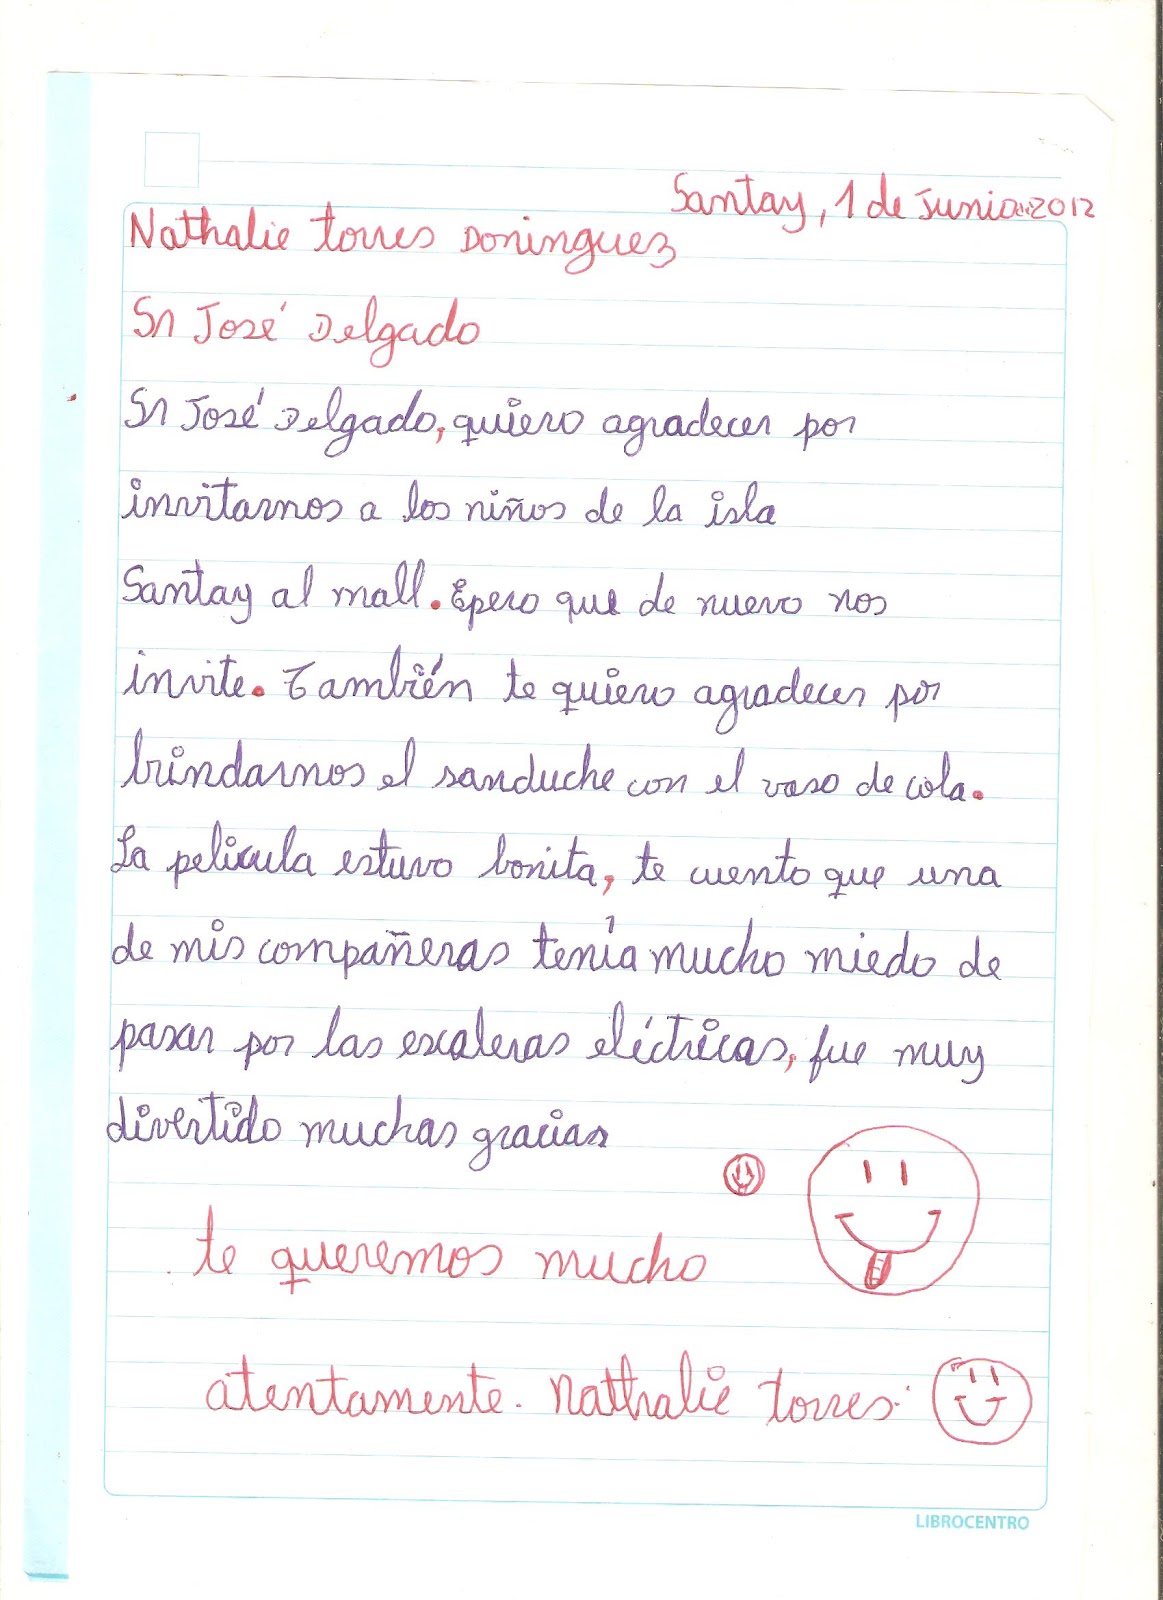 Santay, 1 de Junio 2012
Nathalie torres Doninguez
Sr José Delgado
Sr José Delgado, quiero agradecer por
invitarnos a los niños de la isla
Santay al mall. Epero que de nuevo nos
invite. También te quiero agradecer por
brindarnos el sanduche con el vaso de cola.
La pelicula estuvo bonita, te cuento que una
de mis compañeras tenía mucho miedo de
pasar por las escaleras eléctricas, fue muy
divertido muchas gracias
te queremos mucho
atentamente. Nathalie torres.
LIBROCENTRO